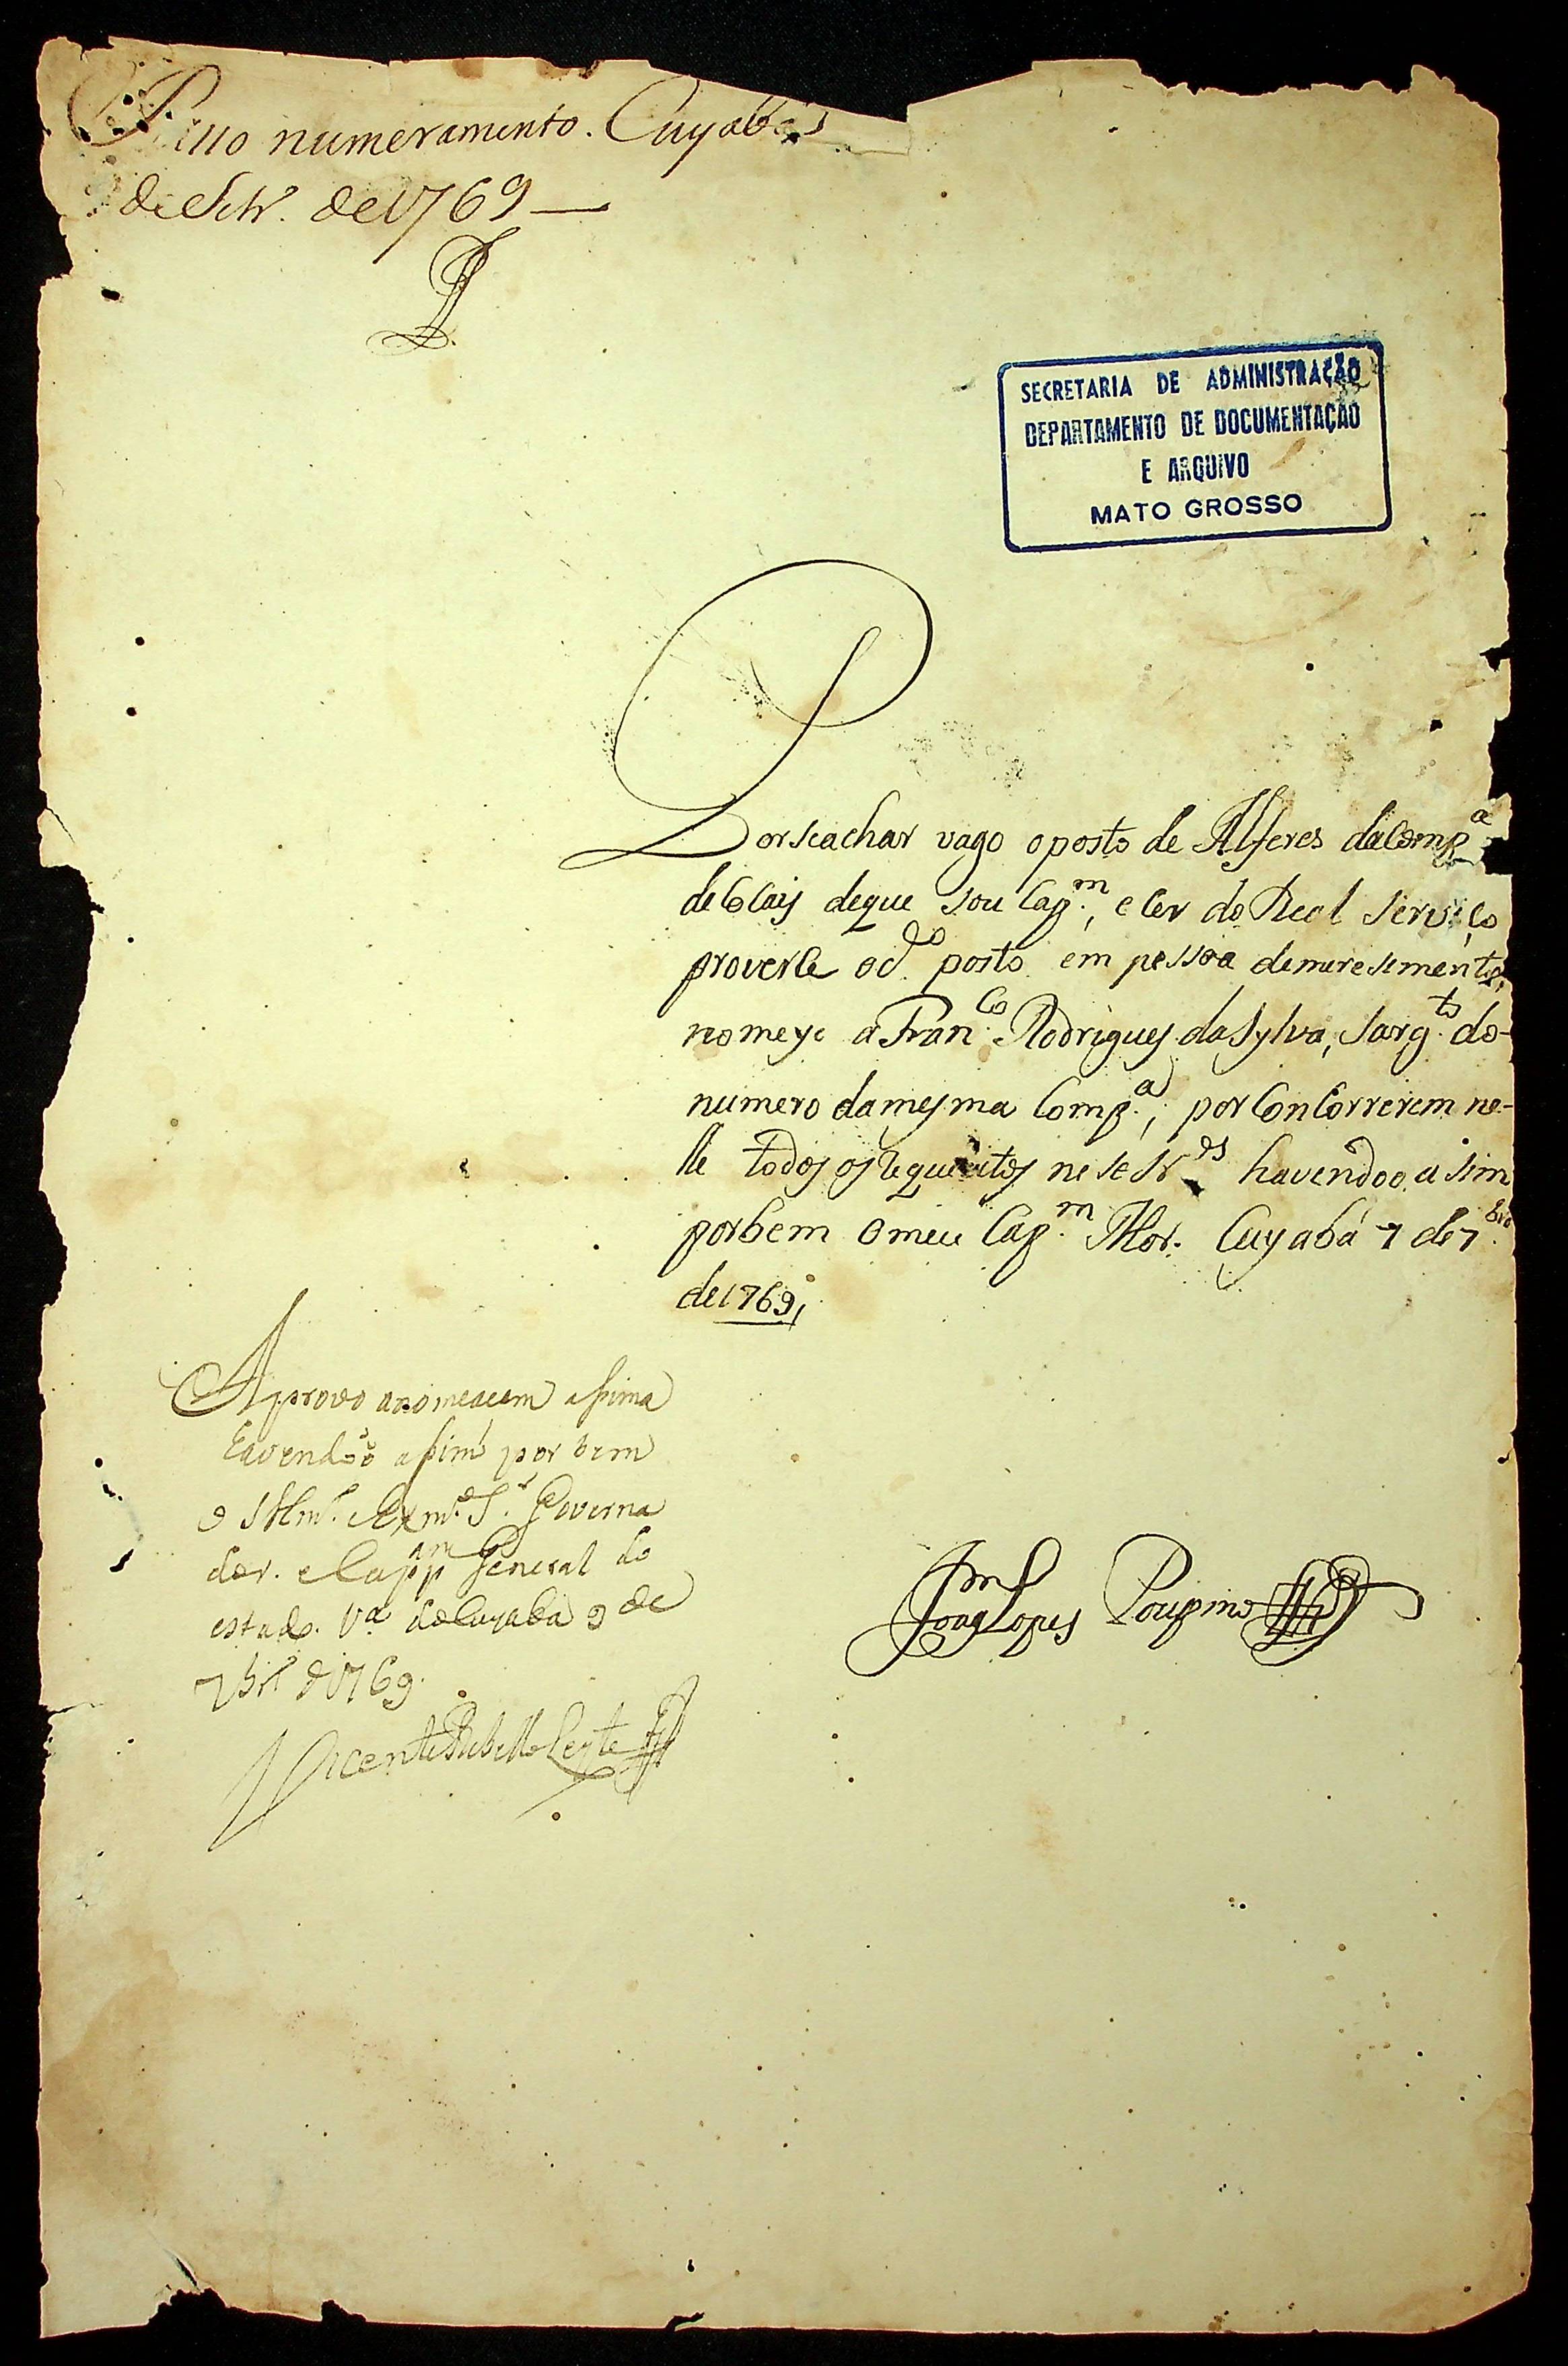 numeramento. Cuyabá
de Setr.º de 1769
SECRETARIA DE ADMINISTRAÇÃO
DEPARTAMENTO DE DOCUMENTAÇÃO
E ARQUIVO
MATO GROSSO
Por se achar vago o posto de Alferes da Comp.ª
de que sou Cap.m, e ser do Real serviço
proverse o d.º posto em pessoa de meresimento,
nomeyo a Fran.co Rodrigues da Sylva, Sarg.to do
numero da mesma Comp.ª, por Concorrerem ne-
lle todos os requezitos nesesr.os havendo o asim
por bem o meu Cap.m Mor. Cuyabá 7 de 7.bro
de 1769,
Aprovo a nomeacam assima
havendo o assim por bem
o Illm.º Exm.º S.r Governa
dor. e Cappam General do
estado. V.ª do Cuyaba 9 de
7br.º d 1769.
João Lopes Poupino
Vicente Rebello Leyte